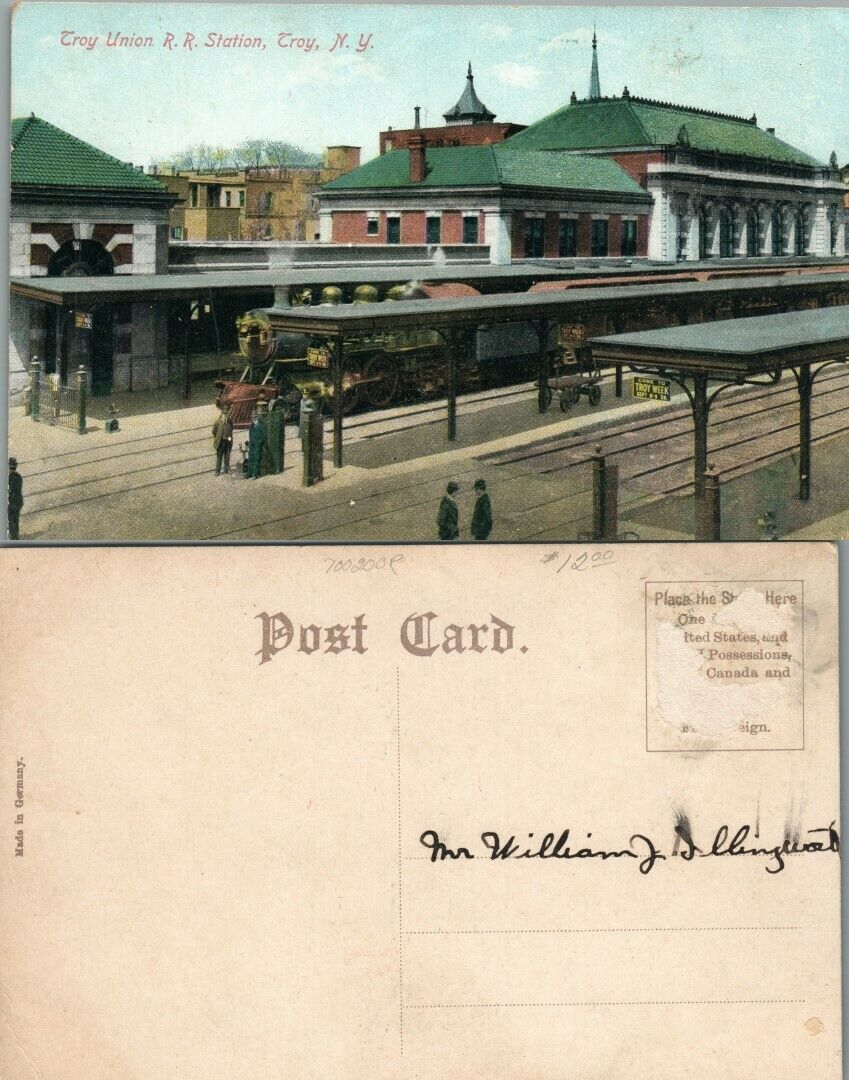 Troy Union R. R. Station, Troy, N. Y.
COME TO
TROY WEEK
SEPT. 6
7002009 $12.00
Post Card.
Place the St Here
One
ited States, and
Possessions,
Canada and
eign.
Made in Germany.
Mr William J. Illingwat